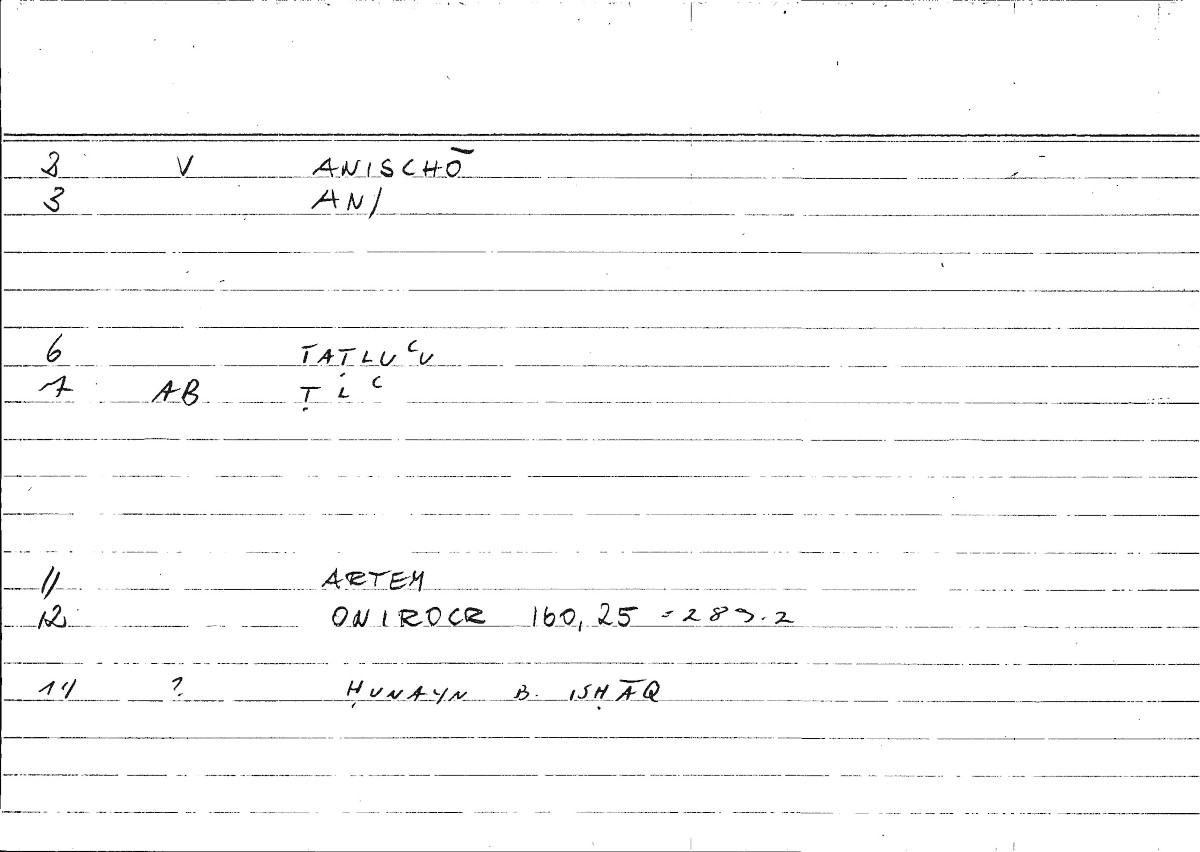 2 V ANISCHŌ
3 AN/
6 TAṬLUʿU
7 AB Ṭ L ʿ
11 ARTEM
12 ONIROCR 160,25 = 289.2
14 ? ḤUNAYN B. ISḤĀQ